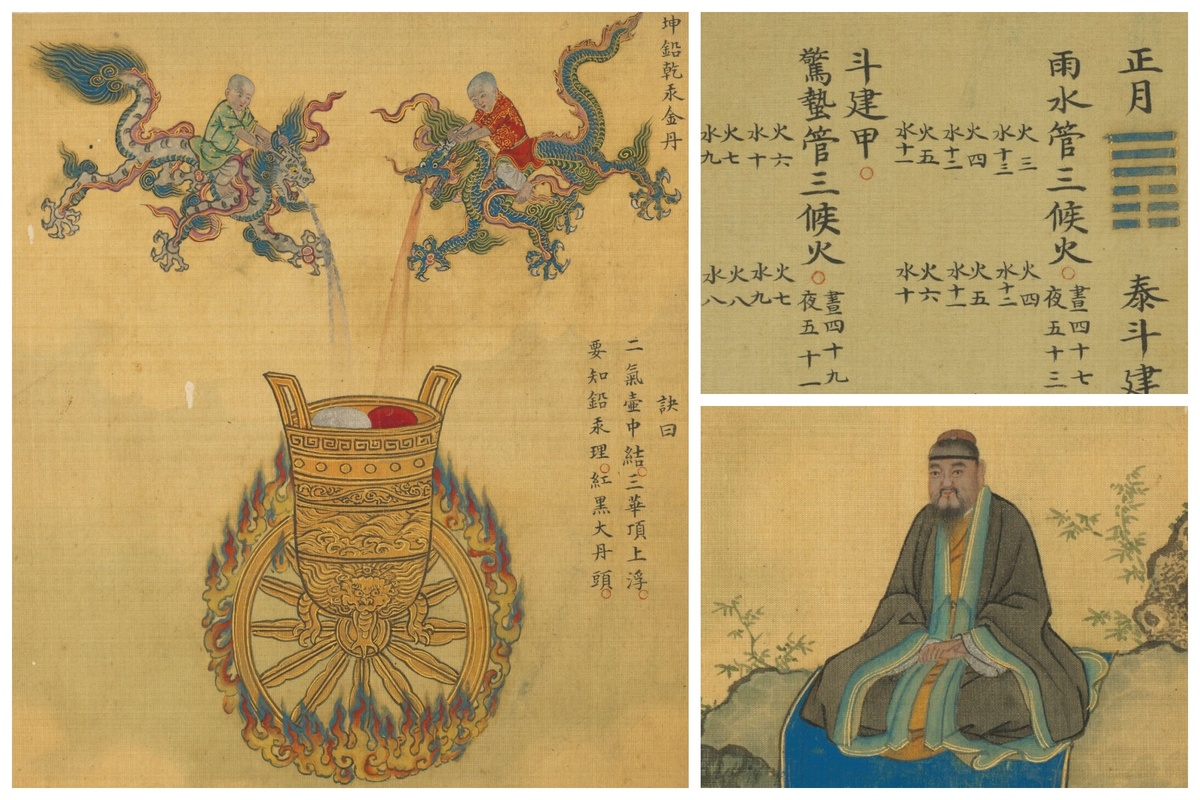 坤鉛乾汞金丹
訣曰
二氣壺中結。三華項上浮。
要知鉛汞理。紅黑大丹頭。
正月 泰斗建
雨水管三候火。
晝四十七
夜五十三
火三
水十三
火四
水十二
火五
水十一
火四
水十二
火五
水十一
火六
水十
斗建甲。
驚蟄管三候火。
晝四十九
夜五十一
火六
水十
火七
水九
火七
水九
火八
水八